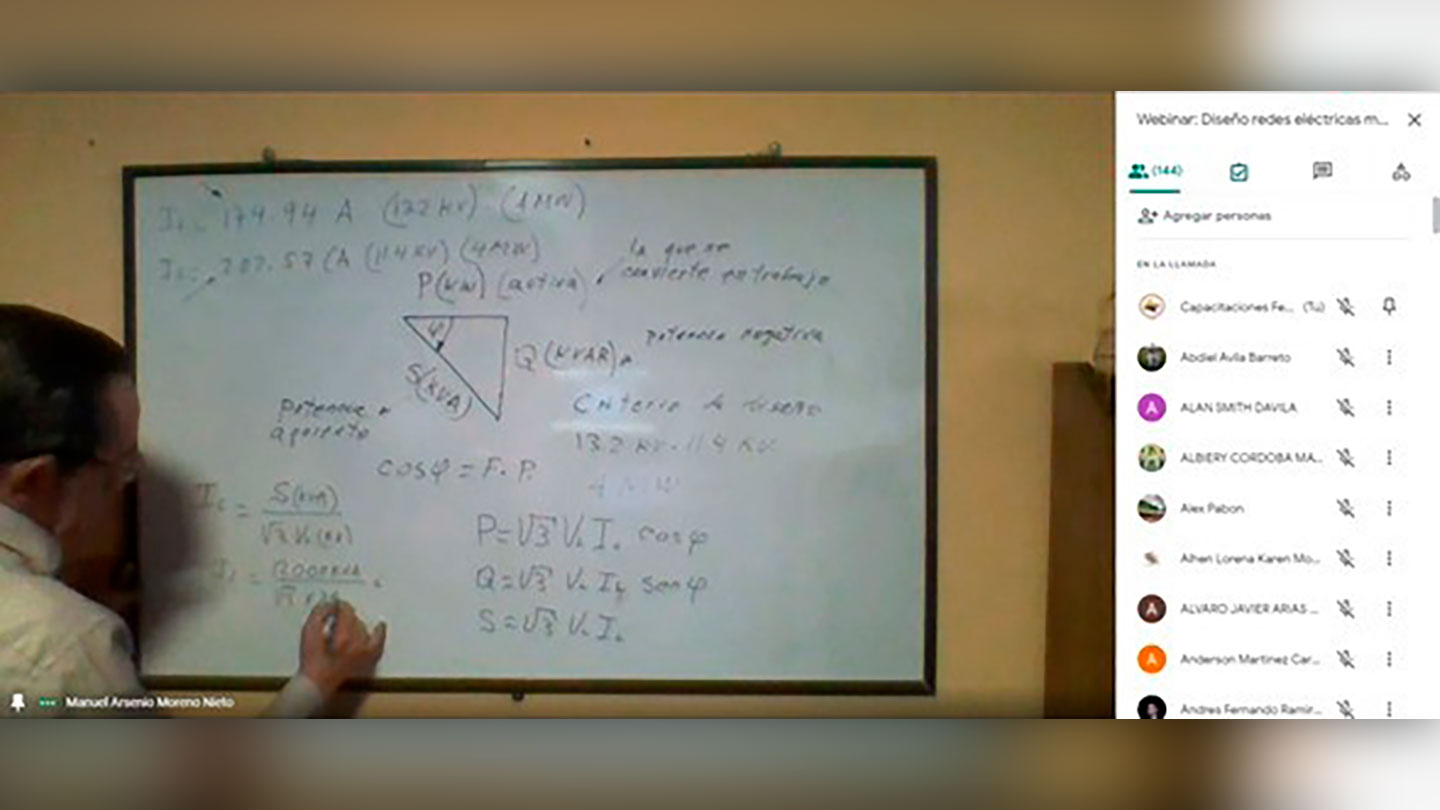 I = 174.94 A (13.2 KV) (4MW)
I = 202.57 (A (11.4 KV) (4MW)
la que se
convierte en trabajo
P(KW) (activa)
φ
Q (KVAR)
potencia negativa
S(KVA)
potencia
aparente
Criterio de diseño
13.2 KV - 11.4 KV
4 MW
cos φ = F. P.
I = S(KVA)
√3 V (KV)
P = √3 V I cos φ
Q = √3 V I sen φ
S = √3 V I
Manuel Arsenio Moreno Nieto
Webinar: Diseño redes eléctricas m...
(144)
Agregar personas
EN LA LLAMADA
Capacitaciones Fe... (Tu)
Abdiel Avila Barreto
A ALAN SMITH DAVILA
ALBIERY CORDOBA MA...
Alex Pabon
Alhen Lorena Karen Mo...
A ALVARO JAVIER ARIAS ...
A Anderson Martinez Car...
Andres Fernando Ramir...